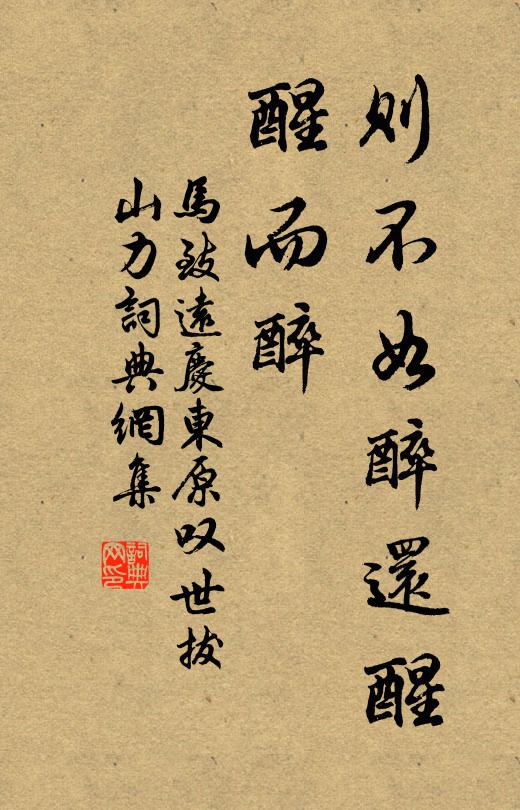 则不如醉還醒
醒而醉
馬致遠慶東原叹世拔
山力詞典網集
詞典
网印